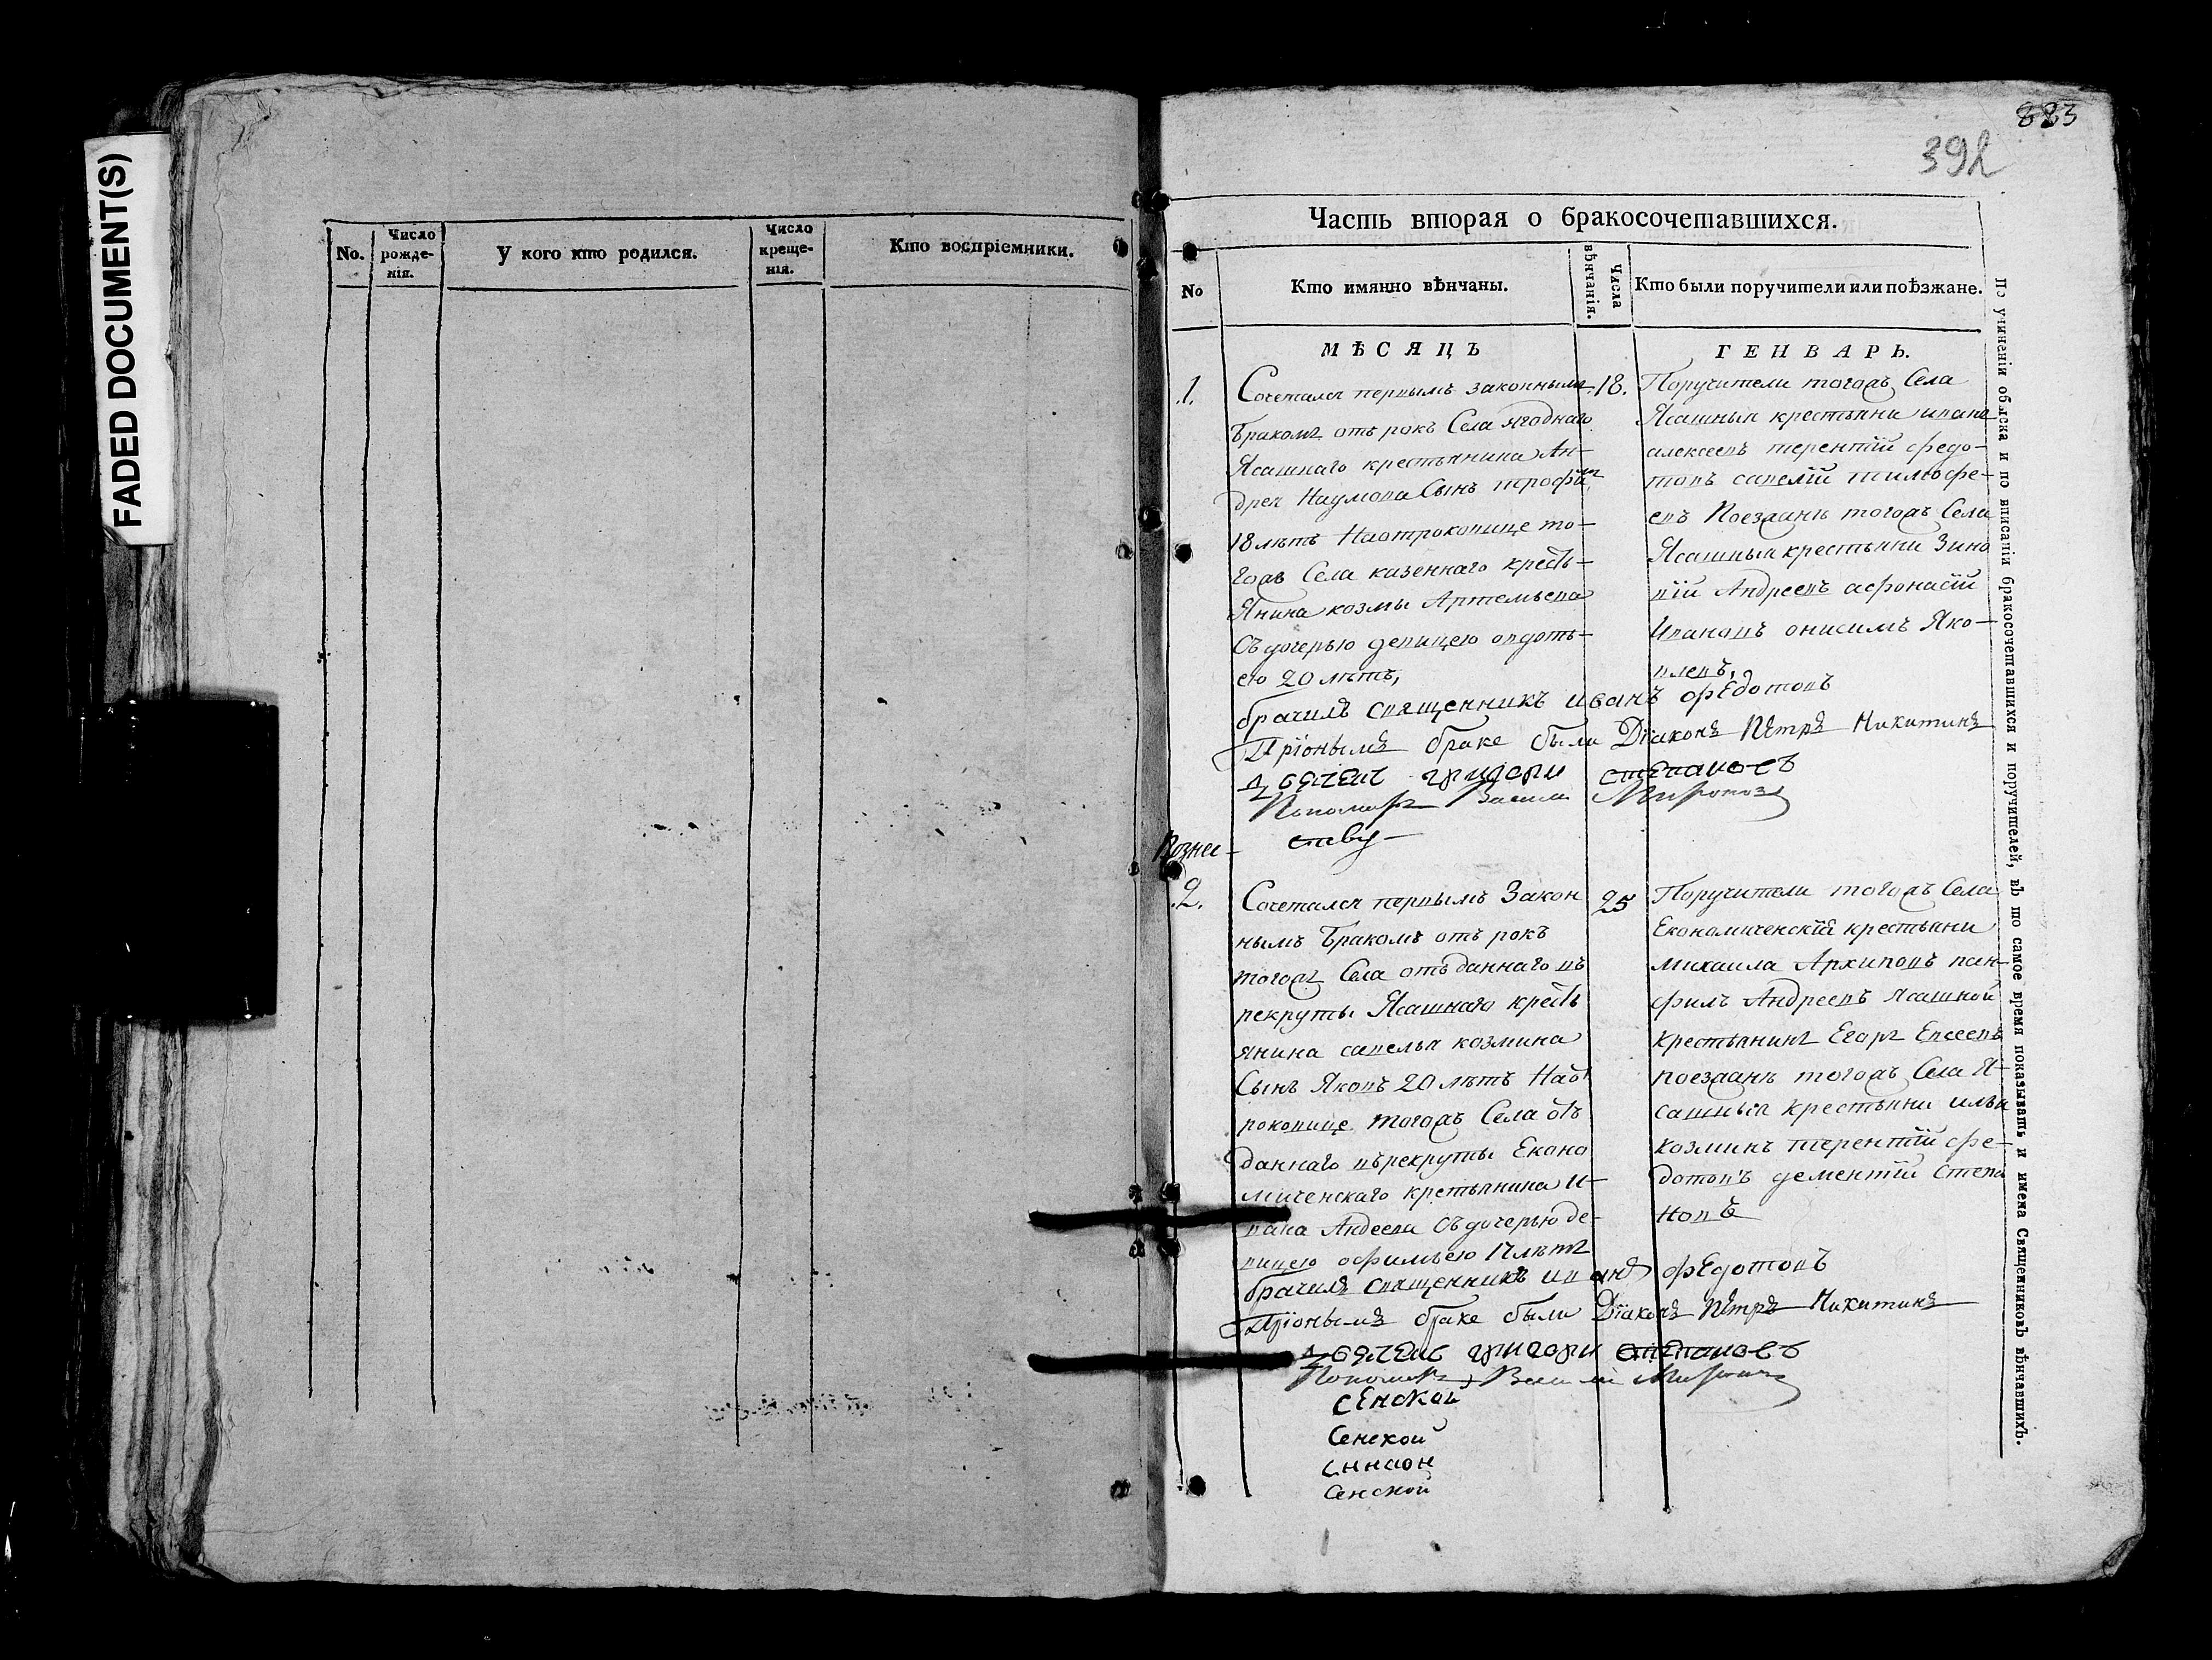 FADED DOCUMENT(S)
No.
Число рожде-нія.
У кого кто родился.
Число креще-нія.
Кто воспріемники.
883
392
Часть вторая о бракосочетавшихся.
No
Кто имянно вѣнчаны.
Числа вѣнчанія.
Кто были поручители или поѣзжане.
МѢСЯЦЪ
ГЕНВАРЬ.
1.
Сочетался первымъ законнымъ
Бракомъ отъ рокъ Села ягоднаго
Ясашнаго крестьянина Ан-
дрея Наумова Сынъ трофимъ
18 лѣтъ Наотроковице то-
гожъ Села казеннаго кресть-
Янина козмы Артемьева
Съ дочерью девицею овдоть-
ею 20 лѣтъ,
18.
Поручители тогожъ Села
Ясашныя крестьяни иванъ
алексеевъ терентiй федо-
товъ савелiй тимофе-
евъ Поезжанѣ тогожъ Села
Ясашныя крестьяни Зино
вiй Андреевъ афонасiй
Ивановъ онисимъ Яко-
влевъ,
брачилъ священникъ иванъ федотовъ
Прiонымъ браке были Дiаконъ Петръ Никитинъ
дьячекъ григори степановъ
Пономарь Васили Миронов
Вознес-
ству
2.
Сочетался первымъ Закон
нымъ Бракомъ отъ рокъ
тогожъ Села отъданнаго въ
рекруты Ясашнаго кресть
янина савелья козмина
Сынъ Яковъ 20 лѣтъ Наот
роковице тогожъ Села отъ
даннаго въ рекруты Еконо
миченскаго кретьянина И-
вана Андеева Съ дочерью де-
вицею офимьею 17 лѣтъ
25
Поручители тогожъ Села
Економиченскiя крестьяни
михаила Архиповъ пан-
филъ Андреевъ Ясашной
крестьянинъ Егоръ Евсеевъ
поезжанѣ тогожъ Села Я-
сашныя крестьяни илья
козминъ терентiй фе-
дотовъ дементiй Степа
новъ
брачилъ священникъ иванъ федотовъ
Прiонымъ браке были Дiаконъ Петръ Никитинъ
дьячекъ григори степановъ
Пономарь Васили Миронов
сенской
Сенской
Сенской
По учиненіи обыска и по вписаніи бракосочетавшихся и поручителей, въ то самое время показывать и имена Священниковъ вѣнчавшихъ.